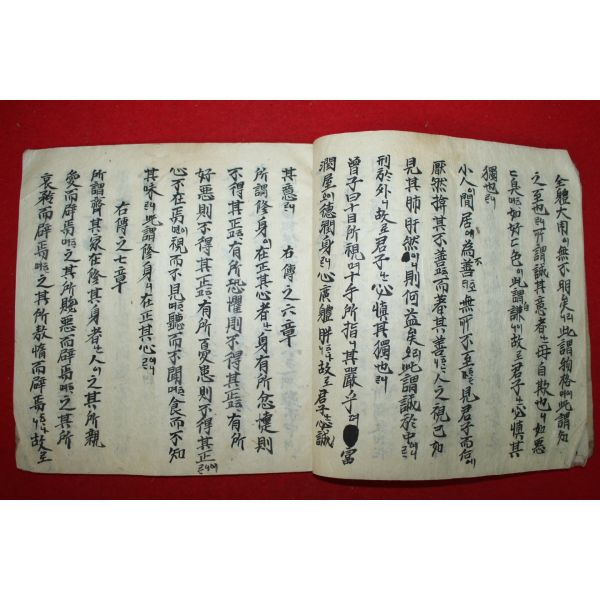 全體大用이無不明矣리니此謂物格이며此謂知
之至也니라所謂誠其意者는毋自欺也니如惡
〻臭며如好〻色이此謂自謙이니故로君子는必慎其
獨也니라
小人이間居에為不善호되無所不至하다가見君子而后에
厭然揜其不善하고而著其善하나니人之視已如
見其肺肝然이니則何益矣리오此謂誠於中이면
形於外니故로君子는必慎其獨也니라
曾子曰十目所視며十手所指니其嚴乎며富
潤屋이오德潤身이라心廣體胖하나니故로君子는必誠
其意니라 右傳之六章
所謂修身이在正其心者는有所忿懥則
不得其正하고有所恐懼則不得其正하고有所
好惡則不得其正하고有所憂患則不得其正이니라
心不在焉이면視而不見하며聽而不聞하며食而不知
其味니라此謂修身이在正其心이니라
右傳之七章
所謂齊其家在修其身者는人이之其所親
愛而辟焉하며之其所賤惡而辟焉하며之其所
哀矜而辟焉하며之其所敖惰而辟焉하나니故로